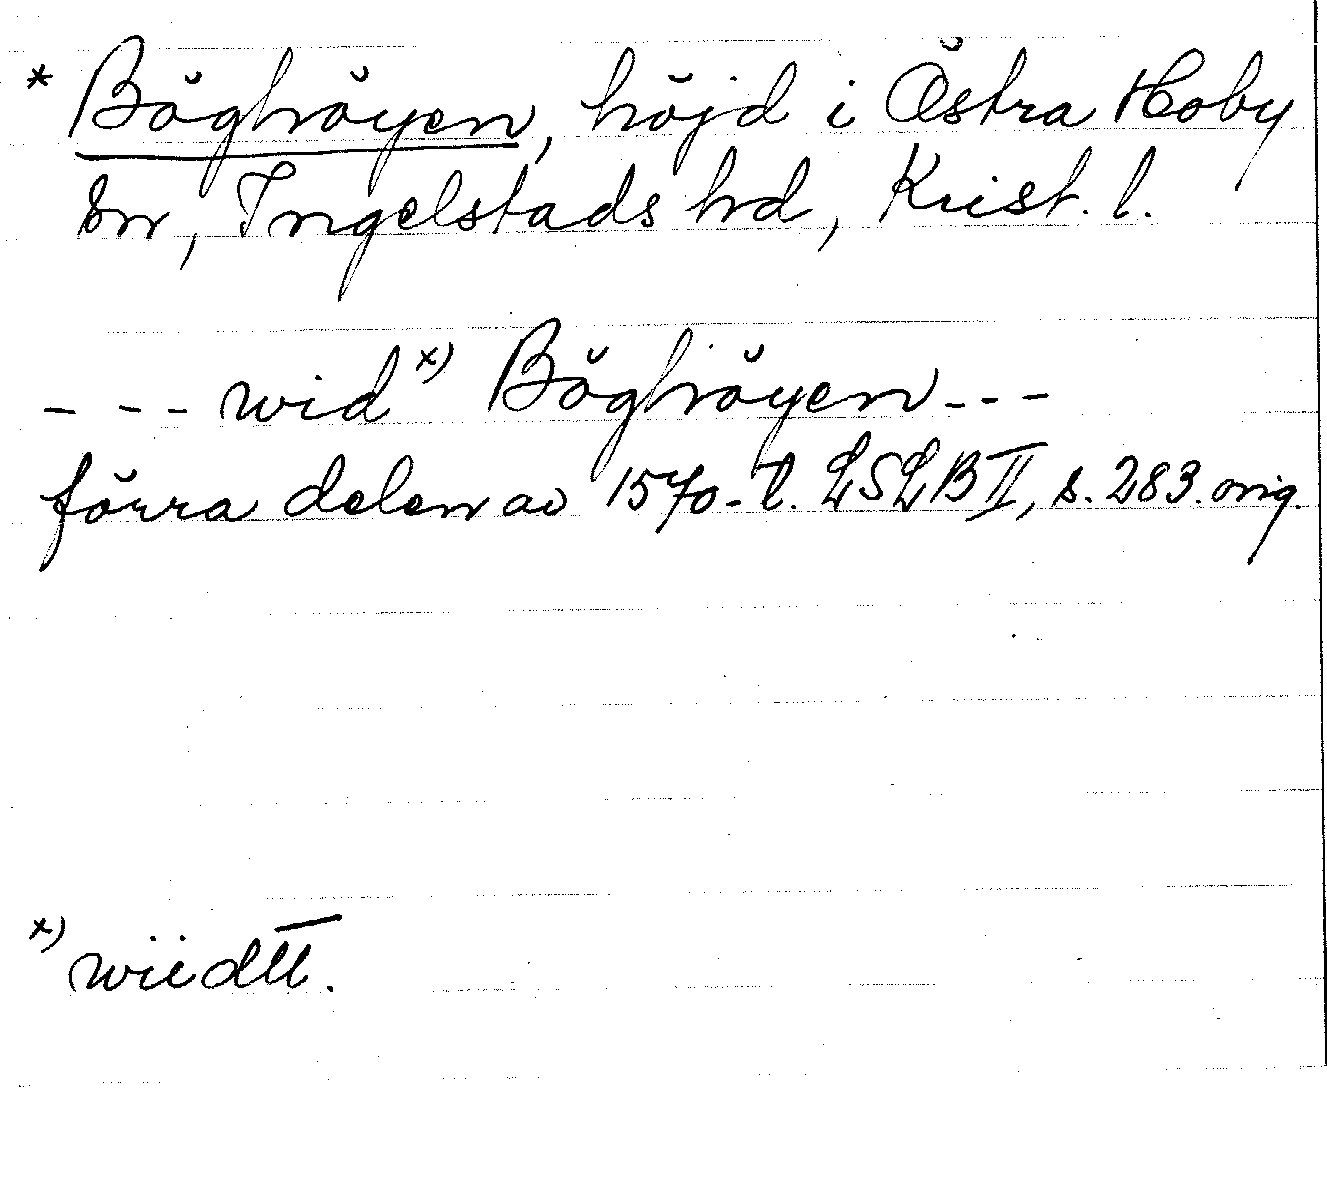 * Böghöyen, höjd i Östra Hoby
sn, Ingelstads hd, Krist. l.
- - - wid x) Böghöyen - - -
förra delen av 1570-t. LSLB II, s. 283. orig.
x) wiidtt.